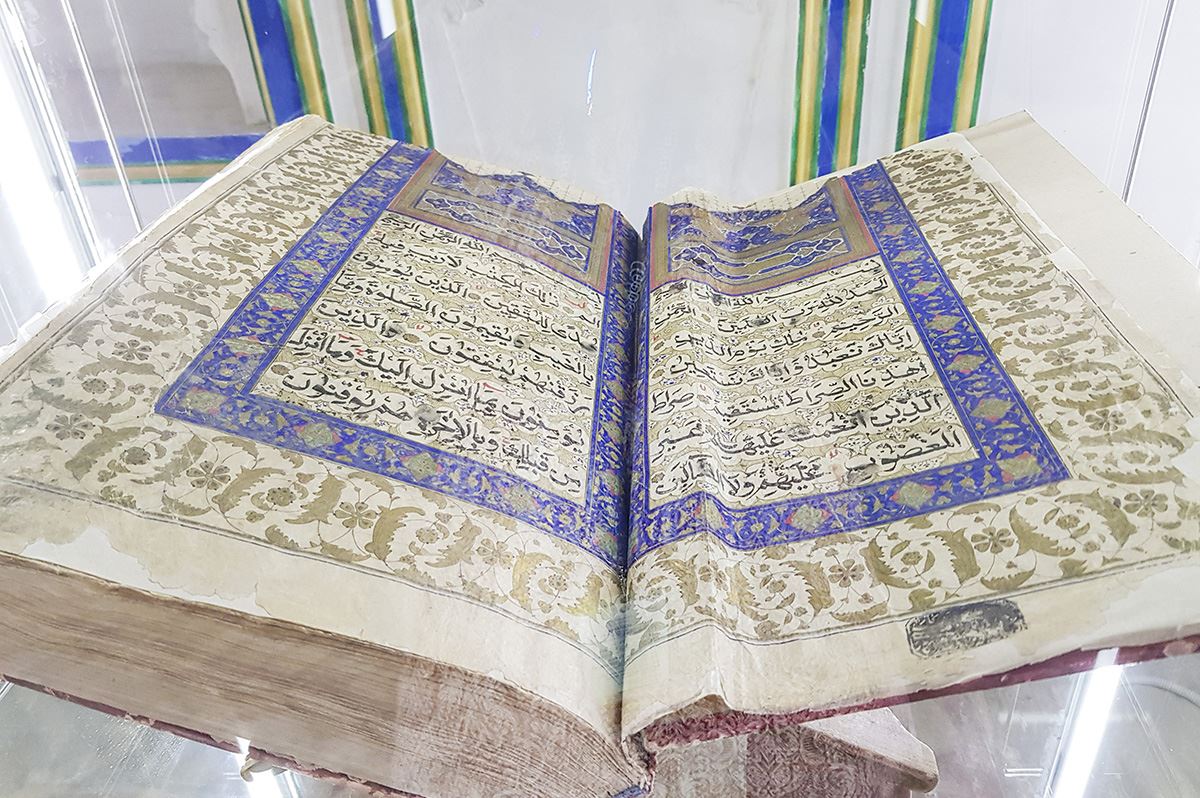 الحمد لله رب العلمين الرحمن
الرحيم ملك يوم الدين
اياك نعبد واياك نستعين
اهدنا الصراط المستقيم صراط
الذين انعمت عليهم غير
المغضوب عليهم ولا الضالين
بسم الله الرحمن الرحيم
الم ذلك الكتب لا ريب فيه
هدى للمتقين الذين يؤمنون
بالغيب ويقيمون الصلوة ومما
رزقنهم ينفقون والذين
يؤمنون بما انزل اليك وما انزل
من قبلك وبالاخرة هم يوقنون